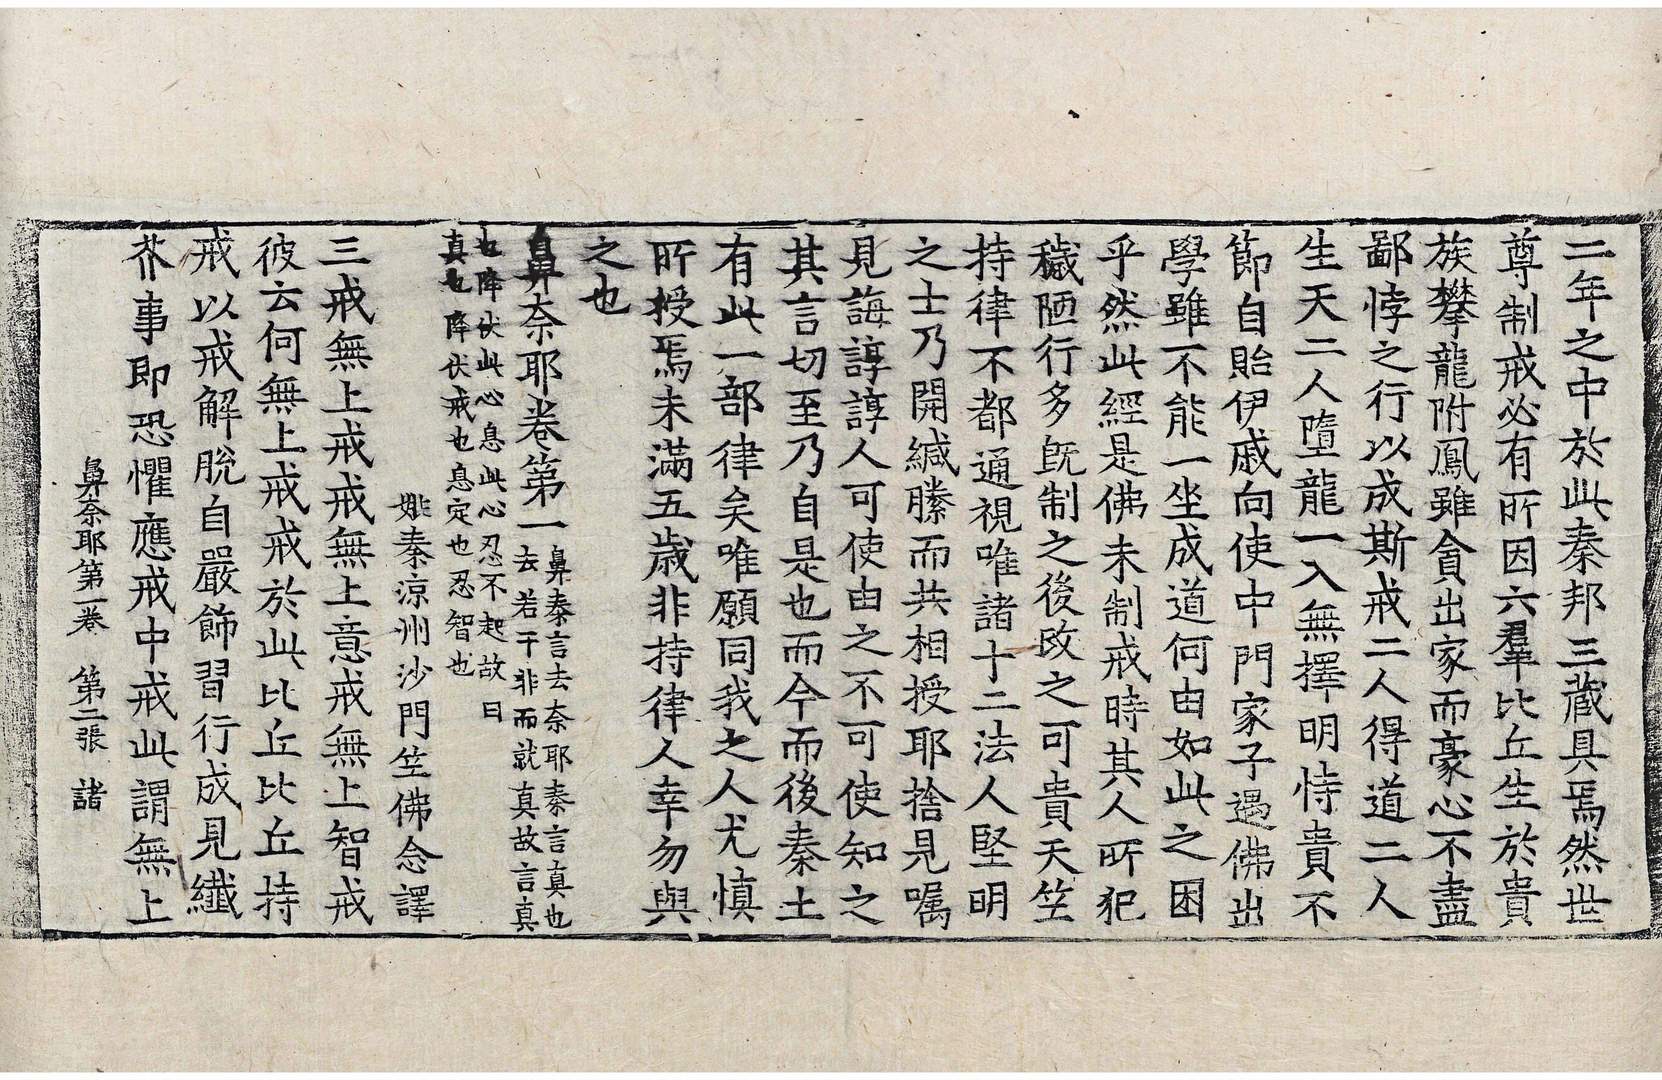 二年之中於此秦邦三藏具焉然世
尊制戒必有所因六羣比丘生於貴
族攀龍附鳳雖貪出家而豪心不盡
鄙悖之行以成斯戒二人得道二人
生天二人墮龍一入無擇明恃貴不
節自貽伊戚向使中門家子遇佛出
學雖不能一坐成道何由如此之困
乎然此經是佛未制戒時其人所犯
穢陋行多旣制之後改之可貴天竺
持律不都通視唯諸十二法人堅明
之士乃開緘縢而共相授耶捨見囑
見誨諄諄人可使由之不可使知之
其言切至乃自是也而今而後秦土
有此一部律矣唯願同我之人尤慎
所授焉未滿五歲非持律人幸勿與
之也
鼻奈耶卷第一
鼻秦言去奈耶秦言真也
去若干非而就真故言真
也降伏此心息此心忍不起故曰
真也降伏戒也息定也忍智也
姚秦涼州沙門竺佛念譯
三戒無上戒戒無上意戒無上智戒
彼云何無上戒戒於此比丘比丘持
戒以戒解脫自嚴飾習行成見纖
芥事即恐懼應戒中戒此謂無上
鼻奈耶第一卷 第二張 諸